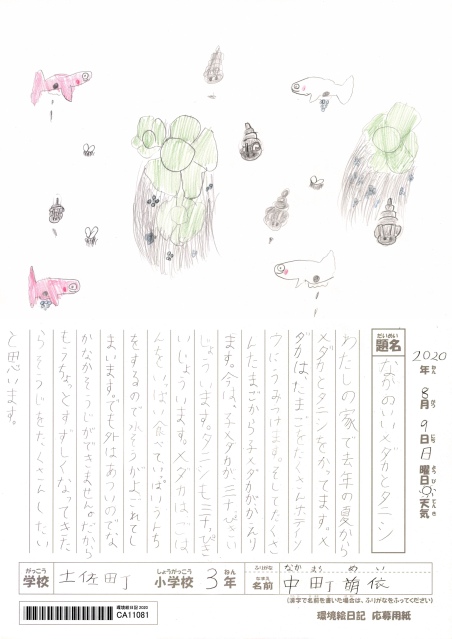 だいめい
題名
なかのいいメダカとタニシ
2020年8月9日日曜日
天気
わたしの家で去年の夏から
メダカとタニシをかってます。メ
ダカは、たまごをたくさんホテイソ
ウにうみつけます。そしてたくさ
んたまごから子メダカがかえり
ます。今は、子メダカが、三十ぴきい
じょういます。タニシも三十ぴき
いじょういます。メダカは、ごは
んをいっぱい食べていっぱいうんち
をするので水そうがよごれてし
まいます。でも外はあついのでな
かなかそうじができません。だから
もうちょっとすずしくなってきた
らそうじをたくさんしたい
と思います。
がっこう
学校
土佐町
しょうがっこう
小学校
3年
ねん
ふりがな
なかまち めい
なまえ
名前
中町 萌依
(漢字で名前を書いた場合は、ふりがなをふってください)
環境絵日記2020
CA11081
環境絵日記 応募用紙